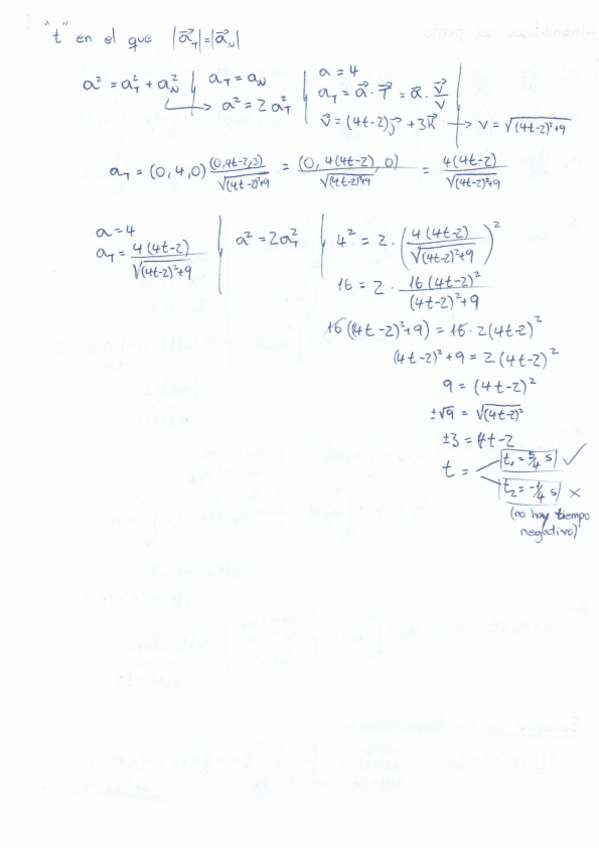 "t" en el que |a⃗_T|=|a⃗_N|
a² = a_T² + a_N² | a_T = a_N → a² = 2a_T² | a = 4
a_T = a⃗ · T⃗ = a⃗ · v⃗/v
v⃗ = (4t-2)j⃗ + 3k⃗ → v = √((4t-2)²+9)
a_T = (0,4,0) (0,4t-2,3)/√((4t-2)²+9) = (0, 4(4t-2), 0)/√((4t-2)²+9) = 4(4t-2)/√((4t-2)²+9)
a = 4
a_T = 4(4t-2)/√((4t-2)²+9) | a² = 2a_T² | 4² = 2 · (4(4t-2)/√((4t-2)²+9))²
16 = 2 · 16(4t-2)²/((4t-2)²+9)
16((4t-2)²+9) = 16·2(4t-2)²
(4t-2)²+9 = 2(4t-2)²
9 = (4t-2)²
±√9 = √(4t-2)²
±3 = 4t-2
t = t₁ = 5/4 s ✓
t₂ = -1/4 s ×
(no hay tiempo
negativo)